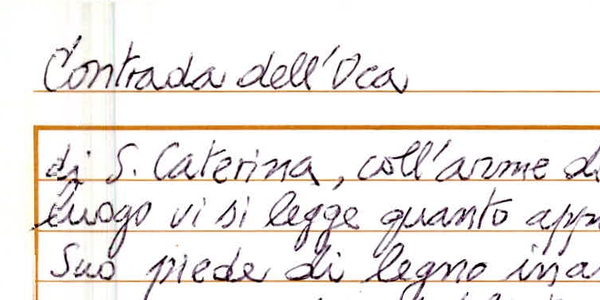 Contrada dell'Oca
di S. Caterina, coll'arme di
luogo vi si legge quanto app
Suo piede di legno ina